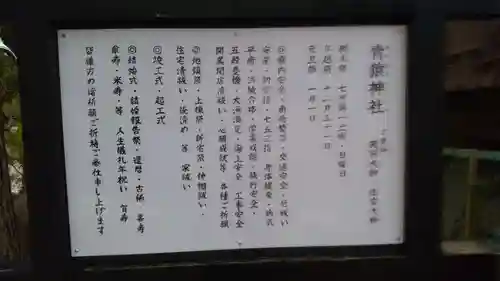 青龍神社
例大祭 七月第二土・日曜日
大祓祭 十二月三十一日
元旦祭 一月一日
◎家内安全・商売繁盛・交通安全・厄祓い
安産・初宮詣・七五三詣・身体健全・病気
平癒・試験合格・営業成就・旅行安全・
五穀豊穣・大漁満足・海上安全・工事安全
開業開店清祓い・心願成就等 各種ご祈願
◎地鎮祭・上棟祭・新宅祭・神棚祓い・
住宅清祓い・気清め 等 家祓い
◎竣工式・起工式
◎結婚式・結婚報告祭・還暦・古稀・喜寿
傘寿・米寿・等 人生儀礼年祝い 賀寿
皆様方の諸祈願ご祈祷ご奉仕申し上げます